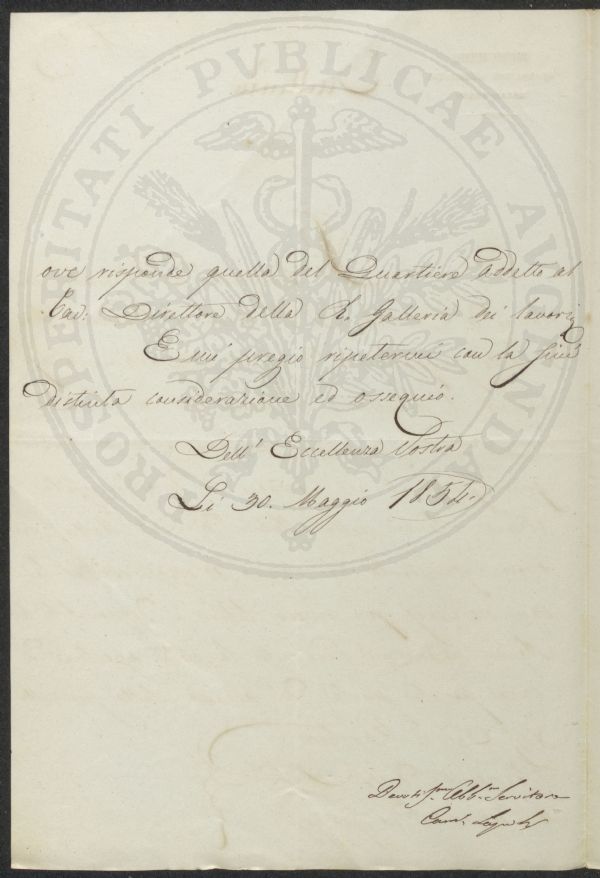 PROSPERITATI PVBLICAE AVGENDAE
ove risponde quella del Quartiere addetto al
Cav: Direttore della R. Galleria dei lavori
E mi pregio ripetermi con la più
distinta considerazione ed ossequio.
Dell' Eccellenza Vostra
Li 30. Maggio 1854.
Devotis.mo Obb.mo Servitore